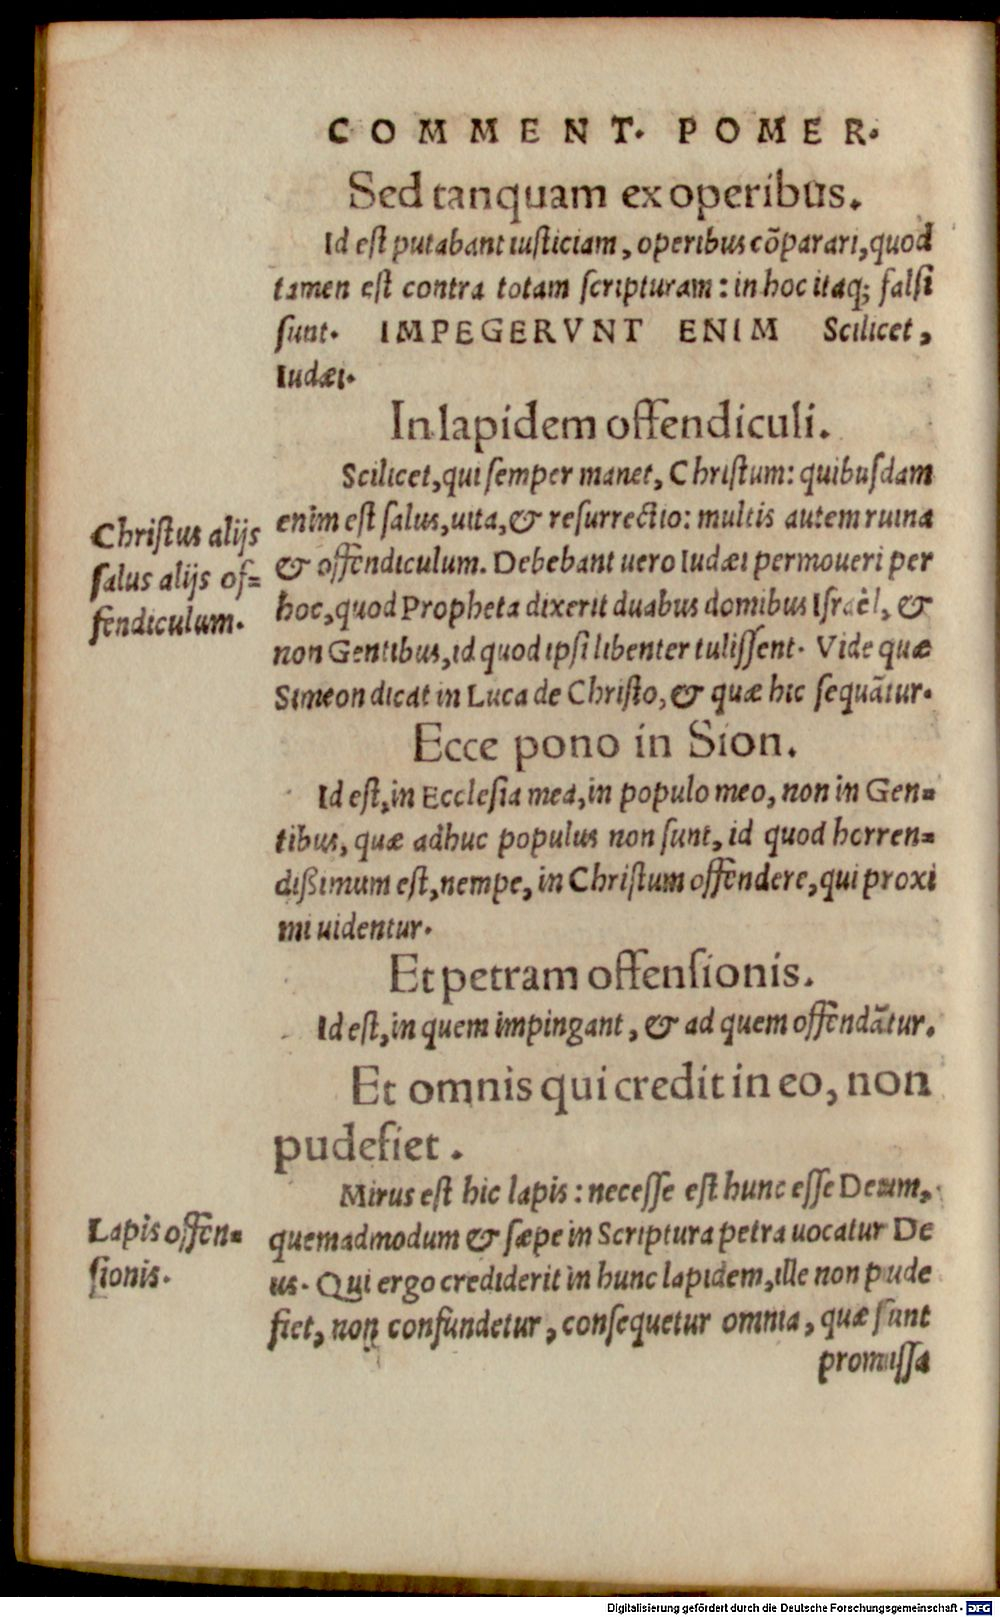 COMMENT. POMER.
Sed tanquam ex operibus.
Id est putabant iusticiam, operibus cōparari, quod
tamen est contra totam scripturam: in hoc itaq; falsi
sunt. IMPEGERVNT ENIM Scilicet,
Iudæi.
In lapidem offendiculi.
Scilicet, qui semper manet, Christum: quibusdam
enim est salus, uita, & resurrectio: multis autem ruina
& offendiculum. Debebant uero Iudæi permoueri per
hoc, quod Propheta dixerit duabus domibus Israèl, &
non Gentibus, id quod ipsi libenter tulissent. Vide quæ
Simeon dicat in Luca de Christo, & quæ hic sequātur.
Christus alijs
salus alijs of-
fendiculum.
Ecce pono in Sion.
Id est, in Ecclesia mea, in populo meo, non in Gen-
tibus, quæ adhuc populus non sunt, id quod horren-
dißimum est, nempe, in Christum offendere, qui proxi
mi uidentur.
Et petram offensionis.
Id est, in quem impingant, & ad quem offendātur.
Et omnis qui credit in eo, non
pudefiet.
Mirus est hic lapis: necesse est hunc esse Deum,
quemadmodum & sæpe in Scriptura petra uocatur De
us. Qui ergo crediderit in hunc lapidem, ille non pude
fiet, non confundetur, consequetur omnia, quæ sunt
Lapis offen-
sionis.
promissa
Digitalisierung gefördert durch die Deutsche Forschungsgemeinschaft - DFG